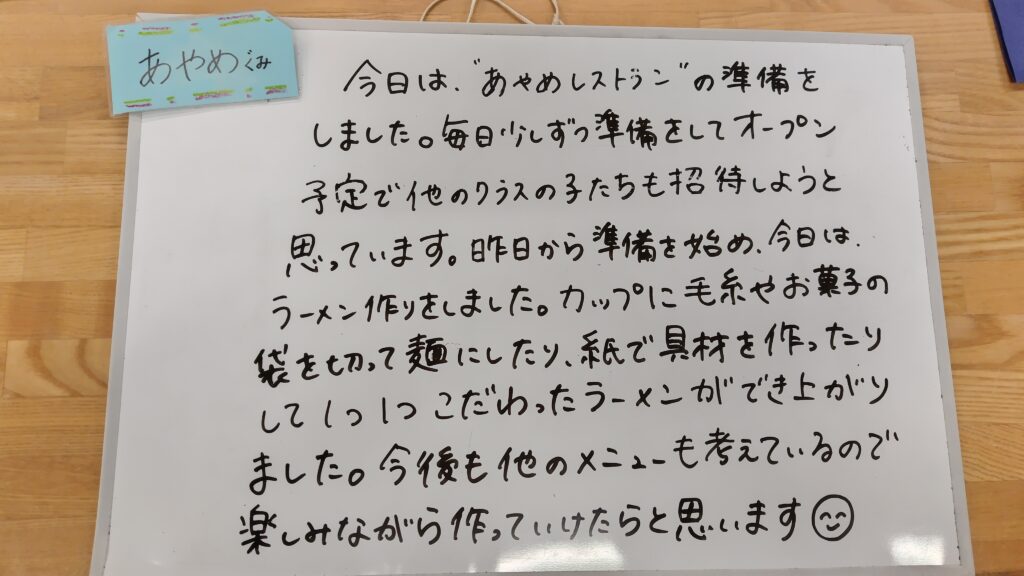 あやめぐみ
今日は、"あやめレストラン"の準備を
しました。毎日少しずつ準備をしてオープン
予定で他のクラスの子たちも招待しようと
思っています。昨日から準備を始め、今日は、
ラーメン作りをしました。カップに毛糸やお菓子の
袋を切って麺にしたり、紙で具材を作ったり
して1つ1つこだわったラーメンができ上がり
ました。今後も他のメニューも考えているので
楽しみながら作っていけたらと思います😊